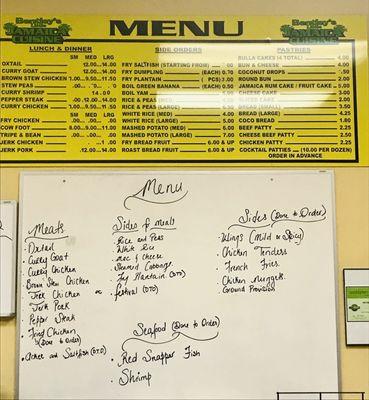 Bentley's
Little
JAMAICA
CUISINE
MENU
Bentley's
Little
JAMAICA
CUISINE
LUNCH & DINNER
SM MED LRG
OXTAIL 12.00 14.00
CURRY GOAT 12.00 14.00
BROWN STEW CHICKEN
STEW PEAS
CURRY SHRIMP 14.00
PEPPER STEAK 12.00 14.00
SM MED LRG
FRY CHICKEN
COW FOOT
TRIPE & BEAN
JERK CHICKEN
JERK PORK 12.00 14.00
SIDE ORDERS
FRY SALTFISH (STARTING FROM)
FRY DUMPLING (EACH) 0.70
FRY PLANTAIN PCS) 3.00
BOIL GREEN BANANA (EACH) 0.50
BOIL YAM
RICE & PEAS
RICE & PEAS (LARGE)
WHITE RICE (MED) 4.00
WHITE RICE (LARGE) 5.00
MASHED POTATO (MED) 6.00
MASHED POTATO (LARGE) 7.00
FRY BREAD FRUIT 6.00 & UP
ROAST BREAD FRUIT 6.00 & UP
PASTRIES
BULLA CAKES (4 TOTAL) 4.00
BUN & CHEESE 4.00
COCONUT DROPS .50
ROUND BUN 2.00
JAMAICA RUM CAKE / FRUIT CAKE
CHEESE CAKE 3.00
BREAD (LARGE) 4.25
COCO BREAD 1.80
BEEF PATTY 2.25
CHEESE BEEF PATTY 2.50
CHICKEN PATTY 2.25
COCKTAIL PATTIES (10.00 PER DOZEN)
ORDER IN ADVANCE
Menu
Meats
• Oxtail
• Curry Goat
• Curry Chicken
• Brown Stew Chicken
• Jerk Chicken
• Jerk Pork
• Pepper Steak
• Fried Chicken
(Done to Order)
• Ackee and Saltfish (DTO)
Sides & meals
• Rice and Peas
• White Rice
• Mac & Cheese
• Steamed Cabbage
• Fry Plantain (DTO)
• Festival (DTO)
Seafood (Done to Order)
• Red Snapper Fish
• Shrimp
Sides (Done to Order)
• Wings (Mild or Spicy)
• Chicken Tenders
• French Fries
• Chicken Nuggets
Ground Provision